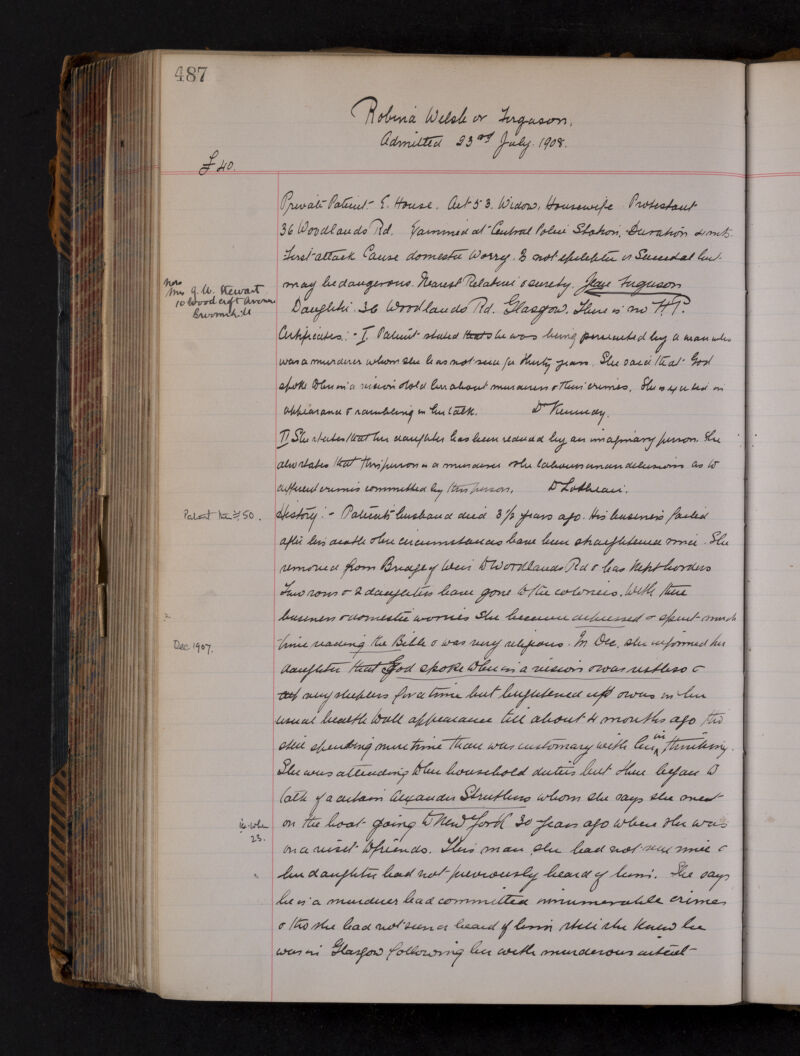 487
Robina Welsh or Ferguson.
Admitted 23rd July. 1908.
£40.
Private Patient - E. House. Aet 53. Widow, Housewife Protestant
36 Woodlands Rd. Examined at Central Police Station. Duration 4 mts.
First attack Cause domestic worry. Is not epileptic or Suicidal but
may be dangerous. Nearest Relative & surety, Jane Ferguson
now
Mrs J. W. Stewart
10 Woodcroft Avenue
Broomhill
Daughter 36 Woodlands Rd. Glasgow. There is no H.P.
Certificates:- I. Patient stated that she was being persecuted by a man who
was a murderer whom she has not seen for thirty years. She said that God
spoke to her in a vision & told her about murderers & their crimes. She is excited in
appearance & rambling in her talk. Dr Kennedy.
II She states that her daughter has been seduced by an imaginary person. She
also states that this person is a murderer & she labours under delusions as to
different crimes committed by this person. Dr Lothian.
Patent £50.
History:- Patient's husband died 3½ years ago. His business failed
after his death & her circumstances have been straightened since. She
removed from Bridge of Weir to Woodlands Rd & has kept boarders
Two sons & 2 daughters have gone to the colonies. With these
business & domestic worries she became depressed & spent much
Dec 1907.
time reading the Bible & was very religious. In Dec. she informed her
daughter that God spoke to her in a vision & was restless &
very sleepless for a time but brightened up & was in her
usual health to all appearance till about 4 months ago tho'
still spending more time than was customary with her in thinking.
She was attending to her household duties but then began to
talk of a certain Alexander Struthers whom she says she met
when
23.
on the boat going to New York 30 years ago where she was
on a visit to friends. This man she had not seen since &
her daughter had not previously heard of him. She says
he is a murderer had committed innumerable crimes
& tho she had not seen or heard of him still she knew he
was in Glasgow following her with murderous intent